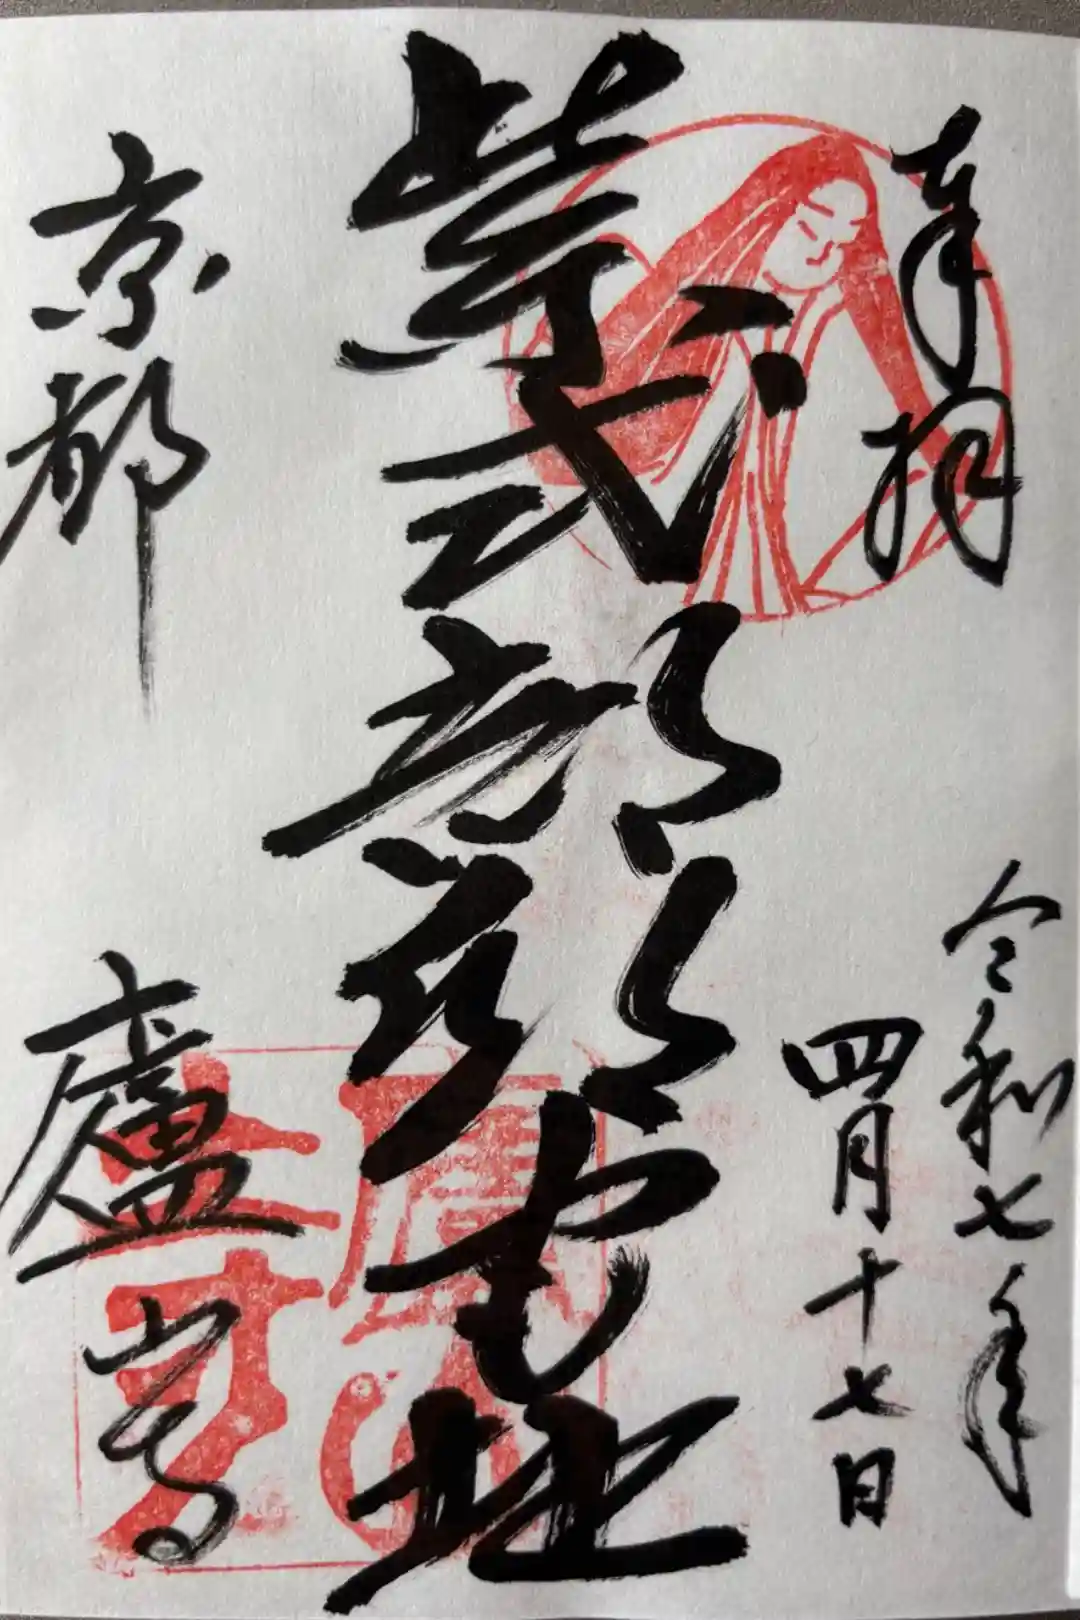 奉拝
令和七年
四月十七日
紫式部邸宅址
京都
廬山寺
廬山寺